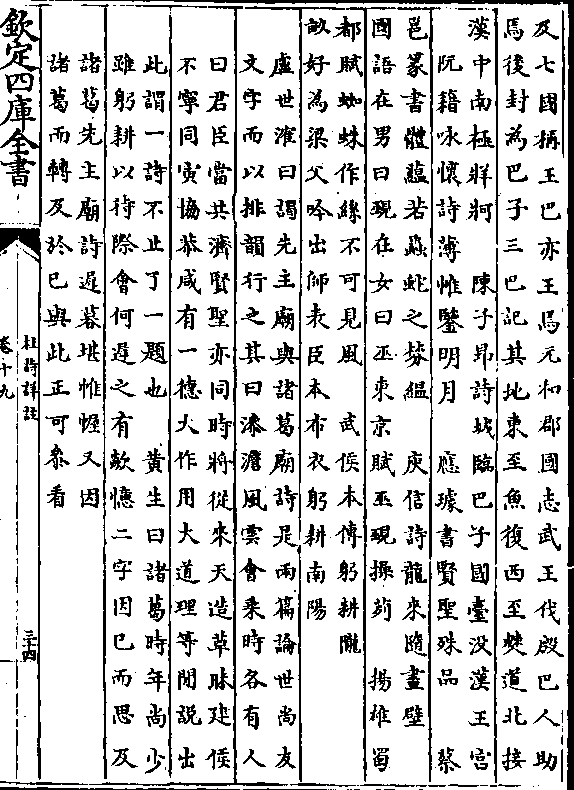 及七國稱王巴亦王焉元和郡國志武王伐殷巴人助
焉後封為巴子三巴記其地東至魚復西至僰道北接
漢中南極牂牁　陳子昻詩城臨巴子國臺没漢王宫
阮籍咏懷詩薄帷鑒明月　應璩書賢聖殊品　蔡
邕篆書體藴若蟲蛇之棼緼　庾信詩龍來隨畫壁
國語在男曰覡在女曰巫東京賦巫覡操茢　揚雄蜀
都賦蜘蛛作絲不可見風　武侯本傳躬耕隴
畝好為梁父吟出師表臣本布衣躬耕南陽
盧世㴶曰謁先主廟與諸葛廟詩是兩篇論世尚友
文字而以排韻行之其曰滲澹風雲會乗時各有人
曰君臣當共濟賢聖亦同時將從來天造草昧建侯
不寧同寅協恭咸有一德大作用大道理等閒説出
此謂一詩不止了一題也　黄生曰諸葛時年尚少
雖躬耕以待際會何遲之有欻憶二字因已而思及
諸葛先主廟詩遲暮堪帷幄又因
諸葛而轉及於已與此正可叅看
欽定四庫全書
杜詩詳註
卷十九
三十四